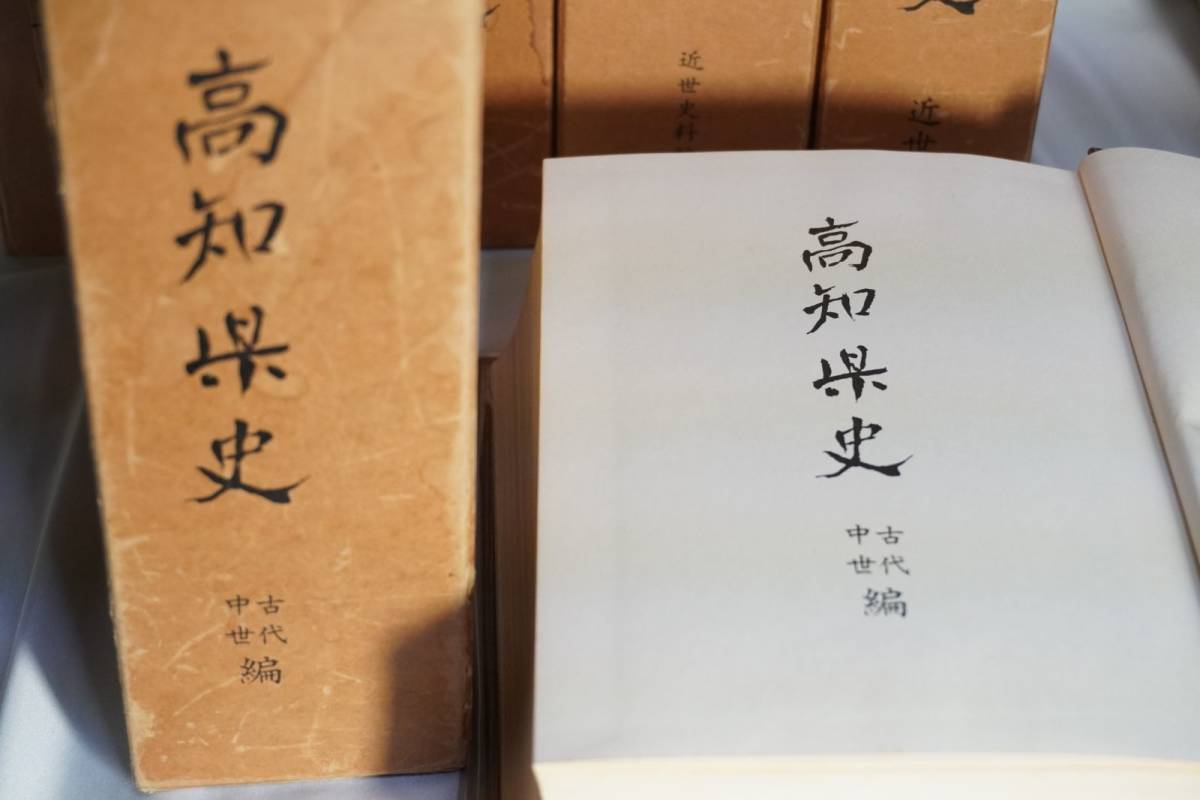 高知県史
古代
中世
編
近世史料
近世
高知県史
古代
中世
編